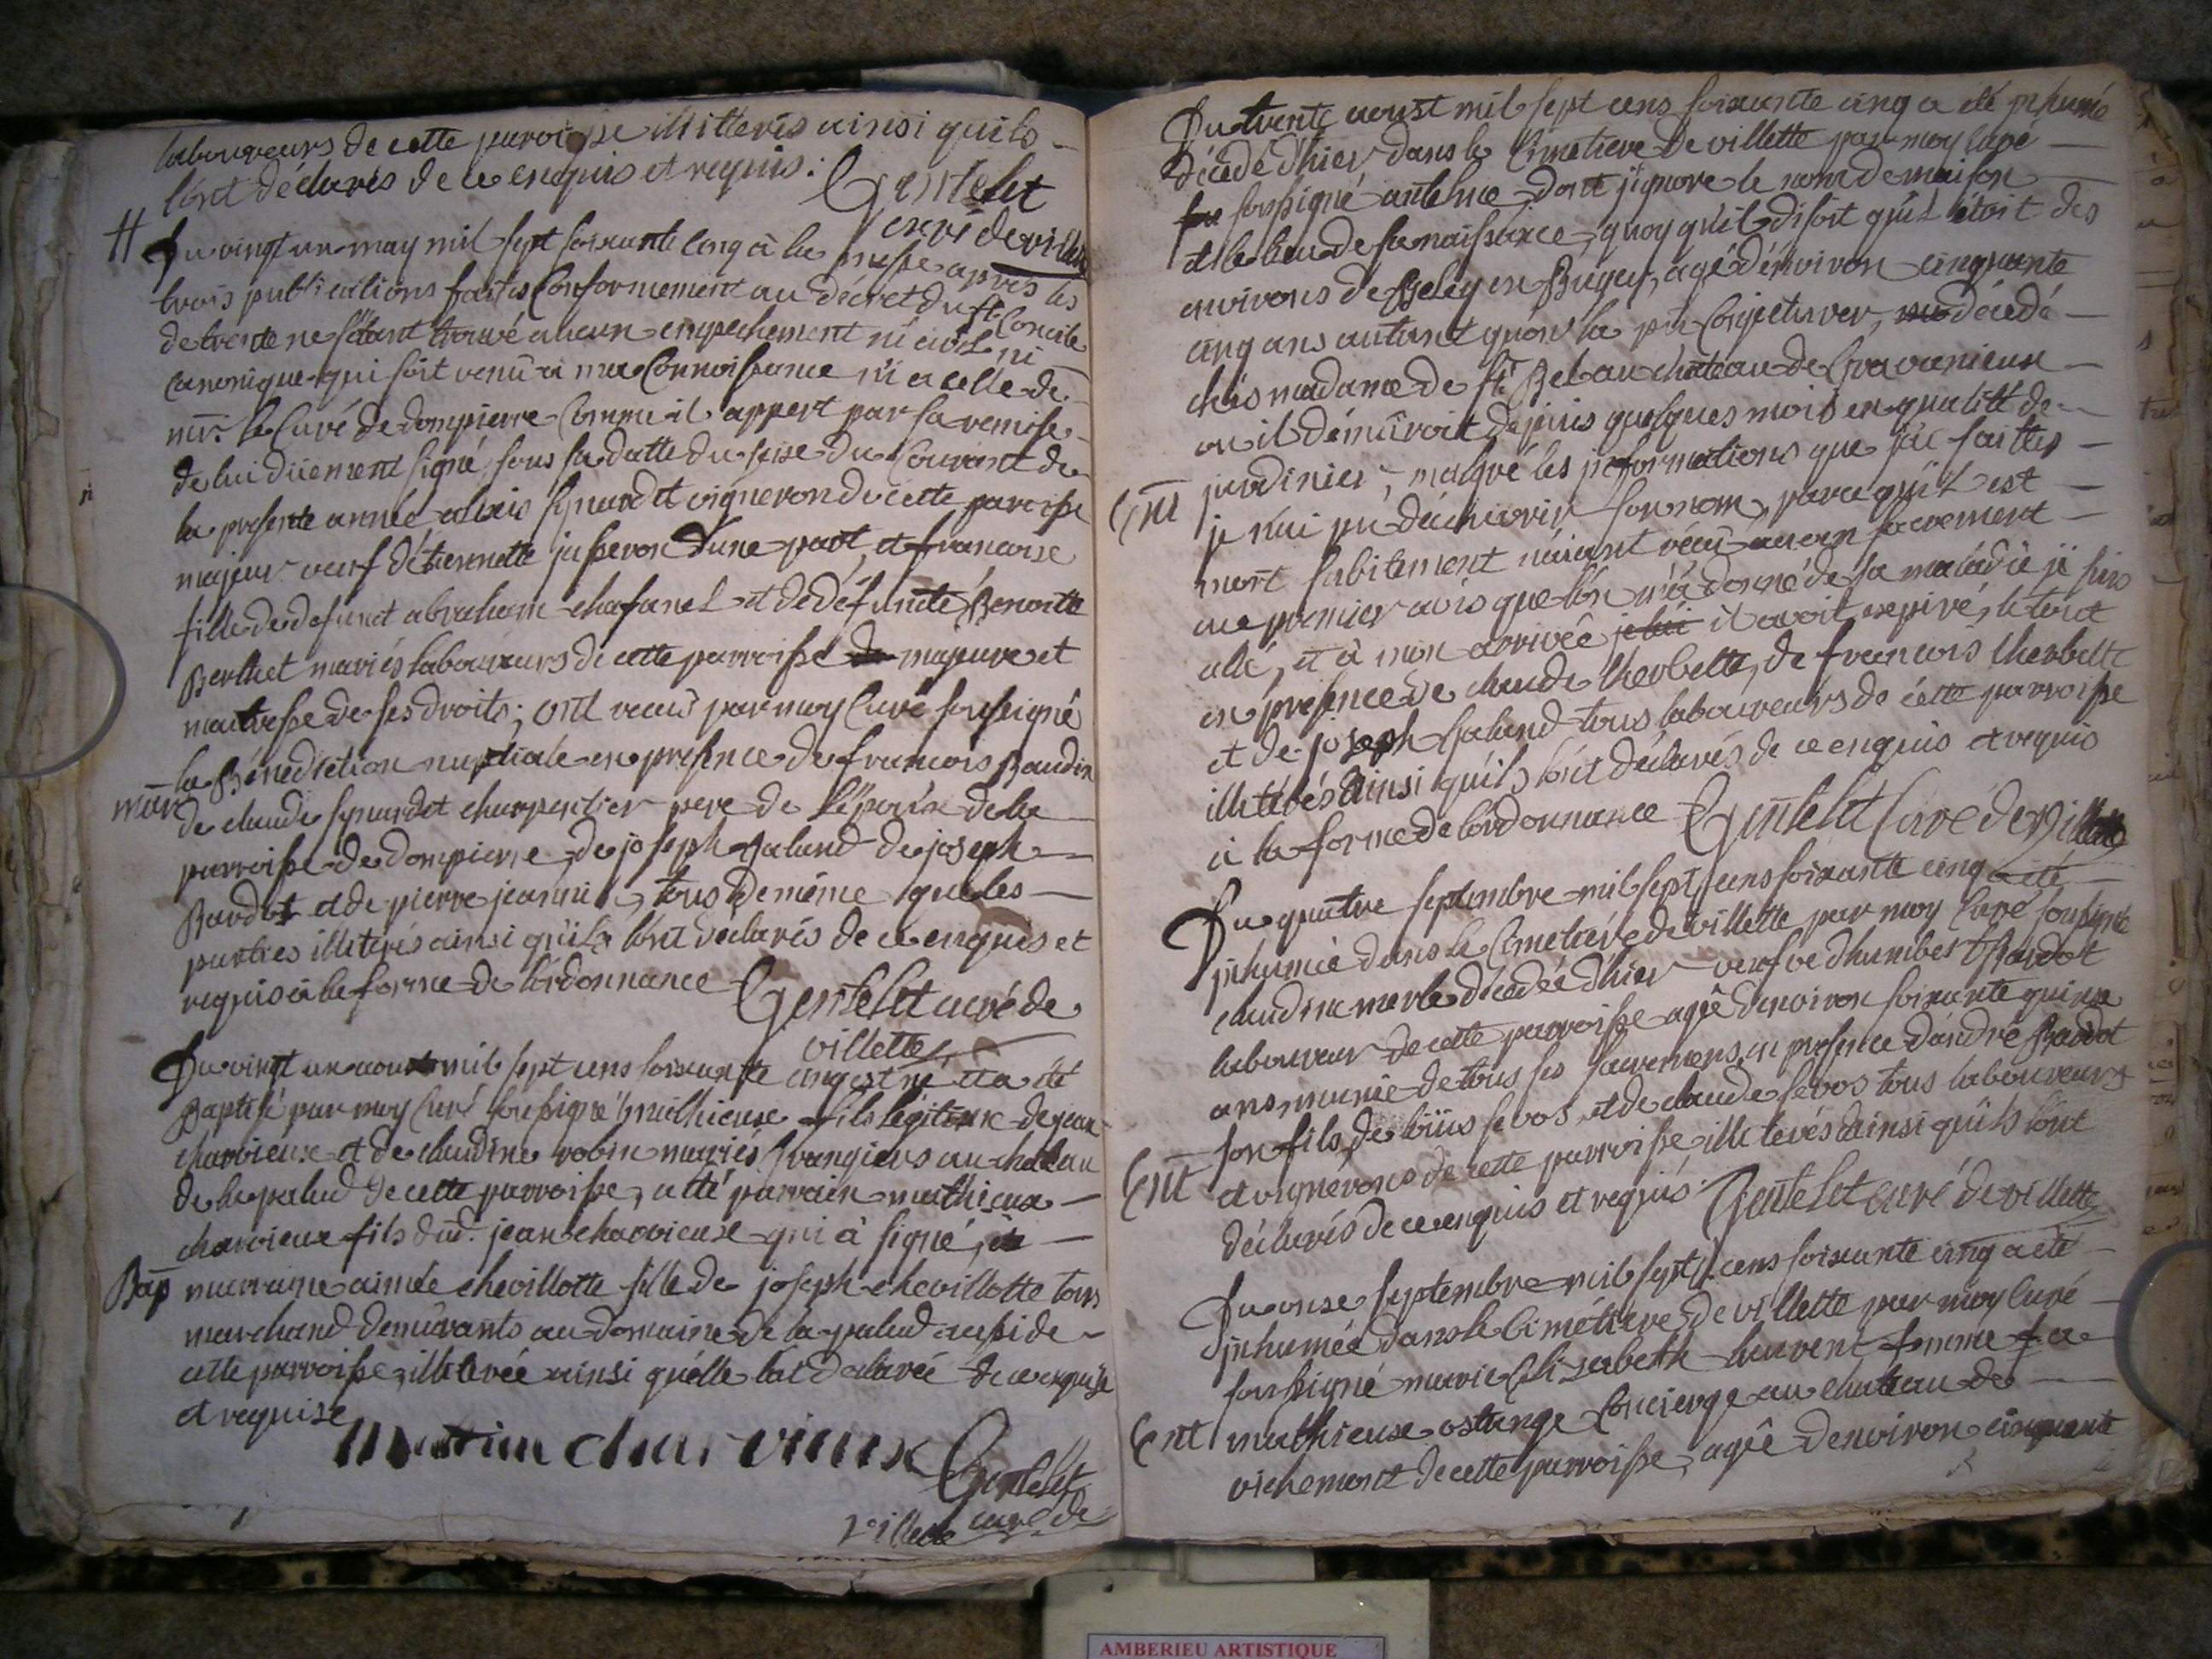 laboureurs de cette paroisse illitterés ainsi quils
l'ont déclarés de ce enquis et requis. Gentelet
curé de villette
# Du vingt un may mil sept soixante cinq à la messe apres les
trois publications faites Conformement au décret du st. Concile
de trente ne sétant trouvé aucun empechement ni civil ni
canonique qui soit venû à ma Connoissance ni a celle de
mr. le Curé de dompierre Comme il appert par sa remise
de lui düement signé sous sa datte du seise du Courant de
la presente année alexis Synardet vigneron de cette paroisse
majeur veuf détiennette josseron d'une part, et francoise
fille de defunct abraham chafanel et de défuncte Benoitte
Berthet mariés laboureurs de cette parroisse de majeure et
maitresse de ses droits; ont receus par moy Curé soussigné
la Bénédiction nuptiale en présence de francois Baudin
mar de claude synardet charpentier pere de l'épouse de la
parroisse de dompierre, de joseph Galand de joseph
Bardot et de pierre jeannin, tous de même que les
parties illeterés ainsi quils l'ont déclarés de ce enquis et
requis à la forme de l'ordonnance Gentelet curé de
villette
Du vingt un aoust mil sept cens soixante cinq est né et a été
Baptisé par moy Curé soussigné mathieux fils légitime de jean
charvieux et de claudine robin mariés grangiers au chateau
de la palud de cette parroisse, a été parrain mathieux
charvieux fils dud. jean charvieux qui à signé, et
Bap marraine aimée chevillotte fille de joseph chevillotte tous
marchand demûrants au domaine de la palud aussi de
cette parroisse, illeterée ainsi quélle l'at déclarée de ce enquise
et requise
Mattieu charvieux Gentelet
curé de
villette
Du trente aoust mil sept cens soixante cinq a été inhumé
décédé d'hier dans le Cimetiere de villette par moy curé
sou soussigné antelme dont j'ignore le nom de maison
et le lieu de sa naissance, quoy qu'il disoit qu'il étoit des
environs de Beley en Bugey, agé d'énviron cinquante
cinq ans autant qu'on la pû Conjecturer, décédé
chés madame de st. Bel au chateau de Gravanieux
ou il démûroit depuis quelques mois en qualité de
jardinier, malgré les informations que j'ai faittes
Ent je n'ai pu découvrir son nom, parce qu'il est
mort subitement n'aiant réçeu aucun sacrement
au premier avis que l'on m'a donné de sa maladie je suis
allé, et à mon arrivée il avoit expiré, le tout
en présence de claude therbette, de francois therbette
et de joseph Galand tous laboureurs de cette parroisse
illetérés ainsi qu'ils l'ont déclarés de ce enquis et requis
à la forme de l'ordonnance Gentelet Curé de villette
Du quatre septembre mil sept cens soixante cinq a été
inhumée dans le Cimetiére de villette par moy Curé soussigné
claudine merle décédée d'hier veufve d'humbert Bardot
laboureur de cette parroisse agée d'environ soixante quinse
ans munie de tous ses sacremens, en présence d'andré Bardot
son fils, de loüis sevos, et de claude sevos tous laboureurs
Ent et vignérons de cette parroisse illeterés ainsi qu'ils l'ont
déclarés de ce enquis et requis. Gentelet curé de villette
Du onse septembre mil sept cens soixante cinq a été
inhumée dans le Cimétiere de villette par moy Curé
soussigné marie Elisabeth laurent femme a
Ent mathieux ostange Concierge au chateau de
richemont de cette parroisse, agée d'environ cinquante
AMBERIEU ARTISTIQUE